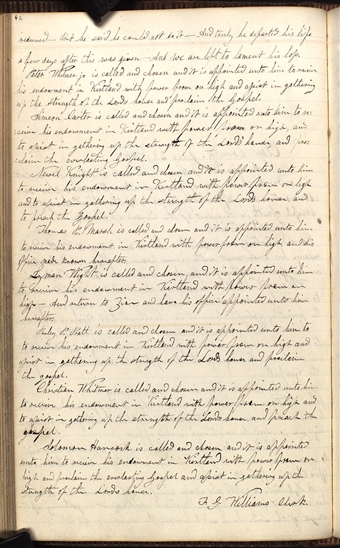 42
redeemed— But he said he could not do it— And truly he departed his life
a few days after this was given— And we are left to lament his loss.
Peter Whitmer jr is called and chosen and it is appointed unto him to receive
his endowment in Kirtland with power from on high and assist in gathering
up the strength of the Lords house and proclaim the Gospel.
Simeon Carter is called and chosen and it is appointed unto him to re
ceive his endowment in Kirtland with power from on high, and
to assist in gathering up the strength of the Lord's house, and pro
claim the everlasting Gospel.
Newel Knight is called and chosen and it is appointed unto him
to receive his endowment in Kirtland with power from on high
and to assist in gathering up the strength of the Lord's house, and
to preach the Gospel.
Thomas B. Marsh is called and chosen and it is appointed unto him
to receive his endowment in Kirtland with power from on high and his
office made known hereafter.
Lyman Wight is called and chosen, and it is appointed unto him
to receive his endowment in Kirtland with power from on
high— And return to Zion and have his office appointed unto him
hereafter.
Parley P. Pratt is called and chosen and it is appointed unto him to
to receive his endowment in Kirtland with power from on high and
assist in gathering up the strength of the Lords house and proclaim
the gospel.
Christian Whitmer is called and chosen and it is appointed unto him
to receive his endowment in Kirtland with power from on high and
to assist in gathering up the strength of the Lords house, and preach the
gospel
Solomon Hancock is called and chosen and it is appointed
unto him to receive his endowment in Kirtland with power from on
high and proclaim the everlasting Gospel and assist in gathering up the
strength of the Lords house.
F. G. Williams Clerk.